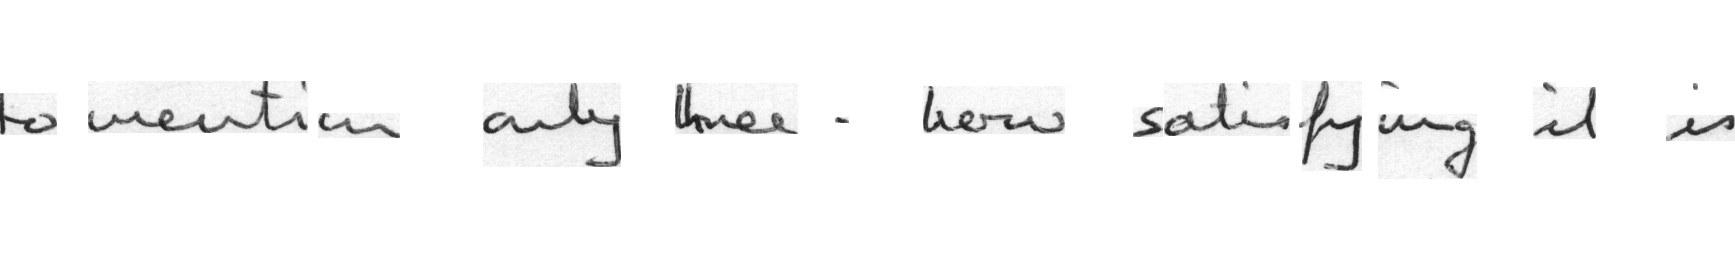 to mention only three - how satisfying it is